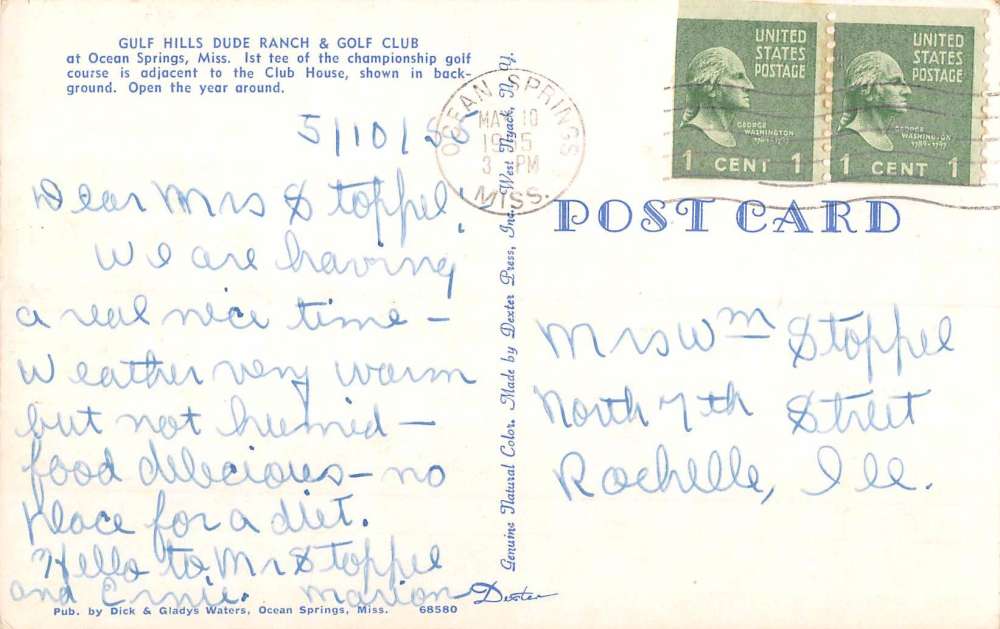 GULF HILLS DUDE RANCH & GOLF CLUB
at Ocean Springs, Miss. 1st tee of the championship golf
course is adjacent to the Club House, shown in back-
ground. Open the year around.
5/10/55
Dear Mrs Stoppel,
We are having
a real nice time –
Weather very warm
but not humid –
food delecious – no
place for a diet.
Hello to Mr Stoppel
and Ernie. Marion
Pub. by Dick & Gladys Waters, Ocean Springs, Miss. 68580
Genuine Natural Color. Made by Dexter Press, Inc. West Nyack, N. Y.
Dexter
OCEAN SPRINGS
MAY 10
1955
3 PM
MISS.
UNITED
STATES
POSTAGE
GEORGE
WASHINGTON
1789-1797
1 CENT 1
UNITED
STATES
POSTAGE
GEORGE
WASHINGTON
1789-1797
1 CENT 1
POST CARD
Mrs Wm Stoppel
North 7th Street
Rochelle, Ill.